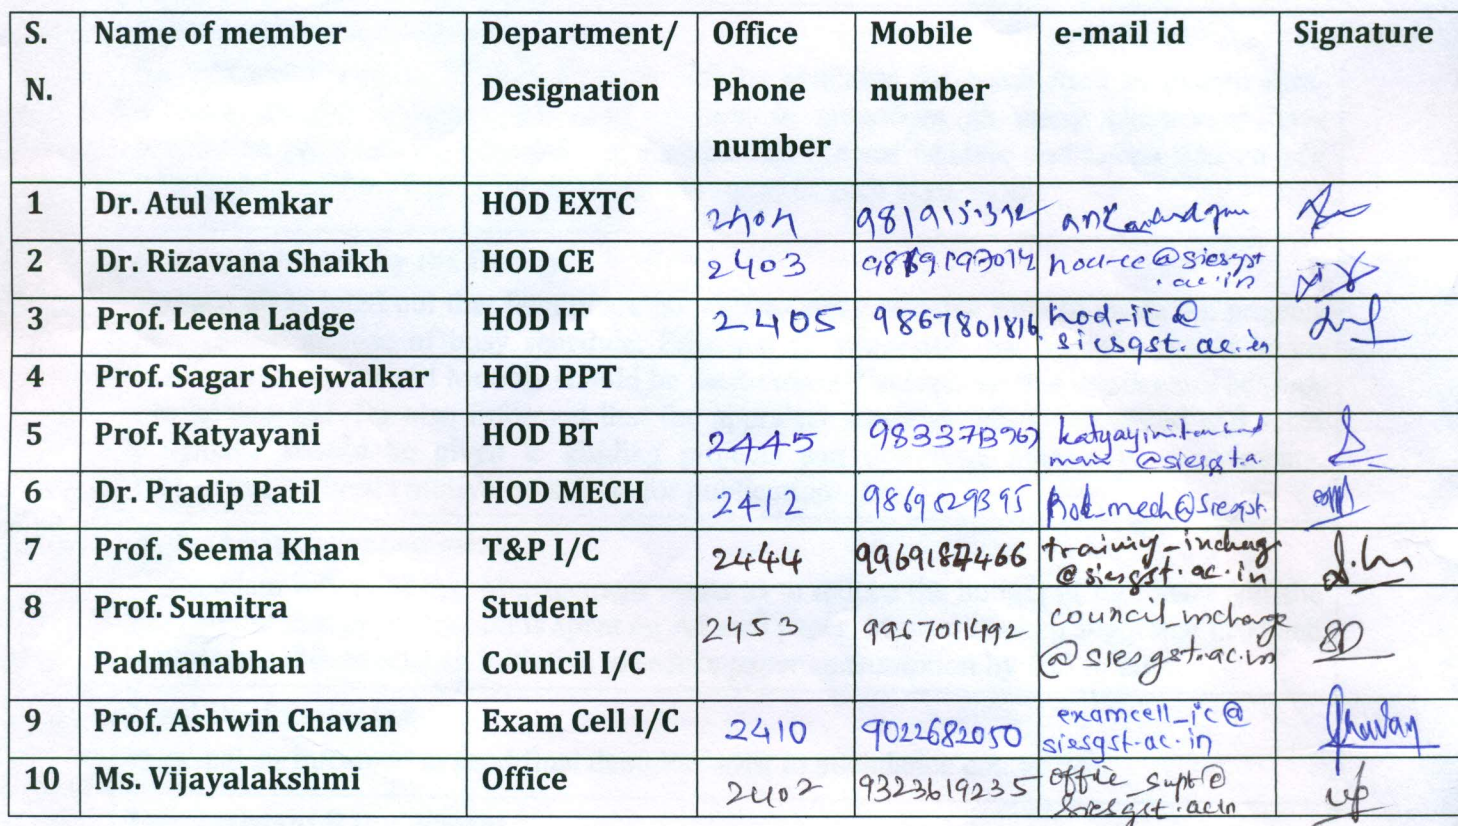 S. N. Name of member Department/ Designation Office Phone number Mobile number e-mail id Signature
1 Dr. Atul Kemkar HOD EXTC 2404
2 Dr. Rizavana Shaikh HOD CE 2403 hod-ce@siesgst
.ac.in
3 Prof. Leena Ladge HOD IT 2405 9867801816 hod-it@
siesgst.ac.in
4 Prof. Sagar Shejwalkar HOD PPT
5 Prof. Katyayani HOD BT 2445
6 Dr. Pradip Patil HOD MECH 2412 9869029395 hod_mech@siesgst
7 Prof. Seema Khan T&P I/C 2444 training_incharg
@siesgst.ac.in
8 Prof. Sumitra Student 2453 9967011492 council_incharge
Padmanabhan Council I/C @siesgst.ac.in
9 Prof. Ashwin Chavan Exam Cell I/C 2410 9022682050 examcell_ic@
siesgst.ac.in Chavan
10 Ms. Vijayalakshmi Office 2402 9323619235 office_supt@
siesgst.ac.in